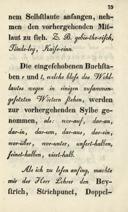 79
nem Selbstlaute anfangen, neh-
men den vorhergehenden Mit-
laut zu sich. Z. B.
Die eingeschobenen Buchsta-
ben r und t, welche bloß des Wohl-
lautes wegen in einigen zusammen-
gesetzten Worten stehen, werden
zur vorhergehenden Sylbe ge-
nommen, als: wor-auf, dar-an,
dar-in, dar-um, dar-aus, dar-ein,
wor-über, wor-unter,
Als ich zu lesen anfing, machte
mir der Herr Lehrer den Bey-
strich, Strichpunct, Doppel-